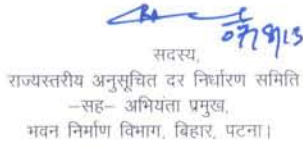 07/8/13
सदस्य,
राज्यस्तरीय अनुसूचित दर निर्धारण समिति
–सह– अभियंता प्रमुख,
भवन निर्माण विभाग, बिहार, पटना।